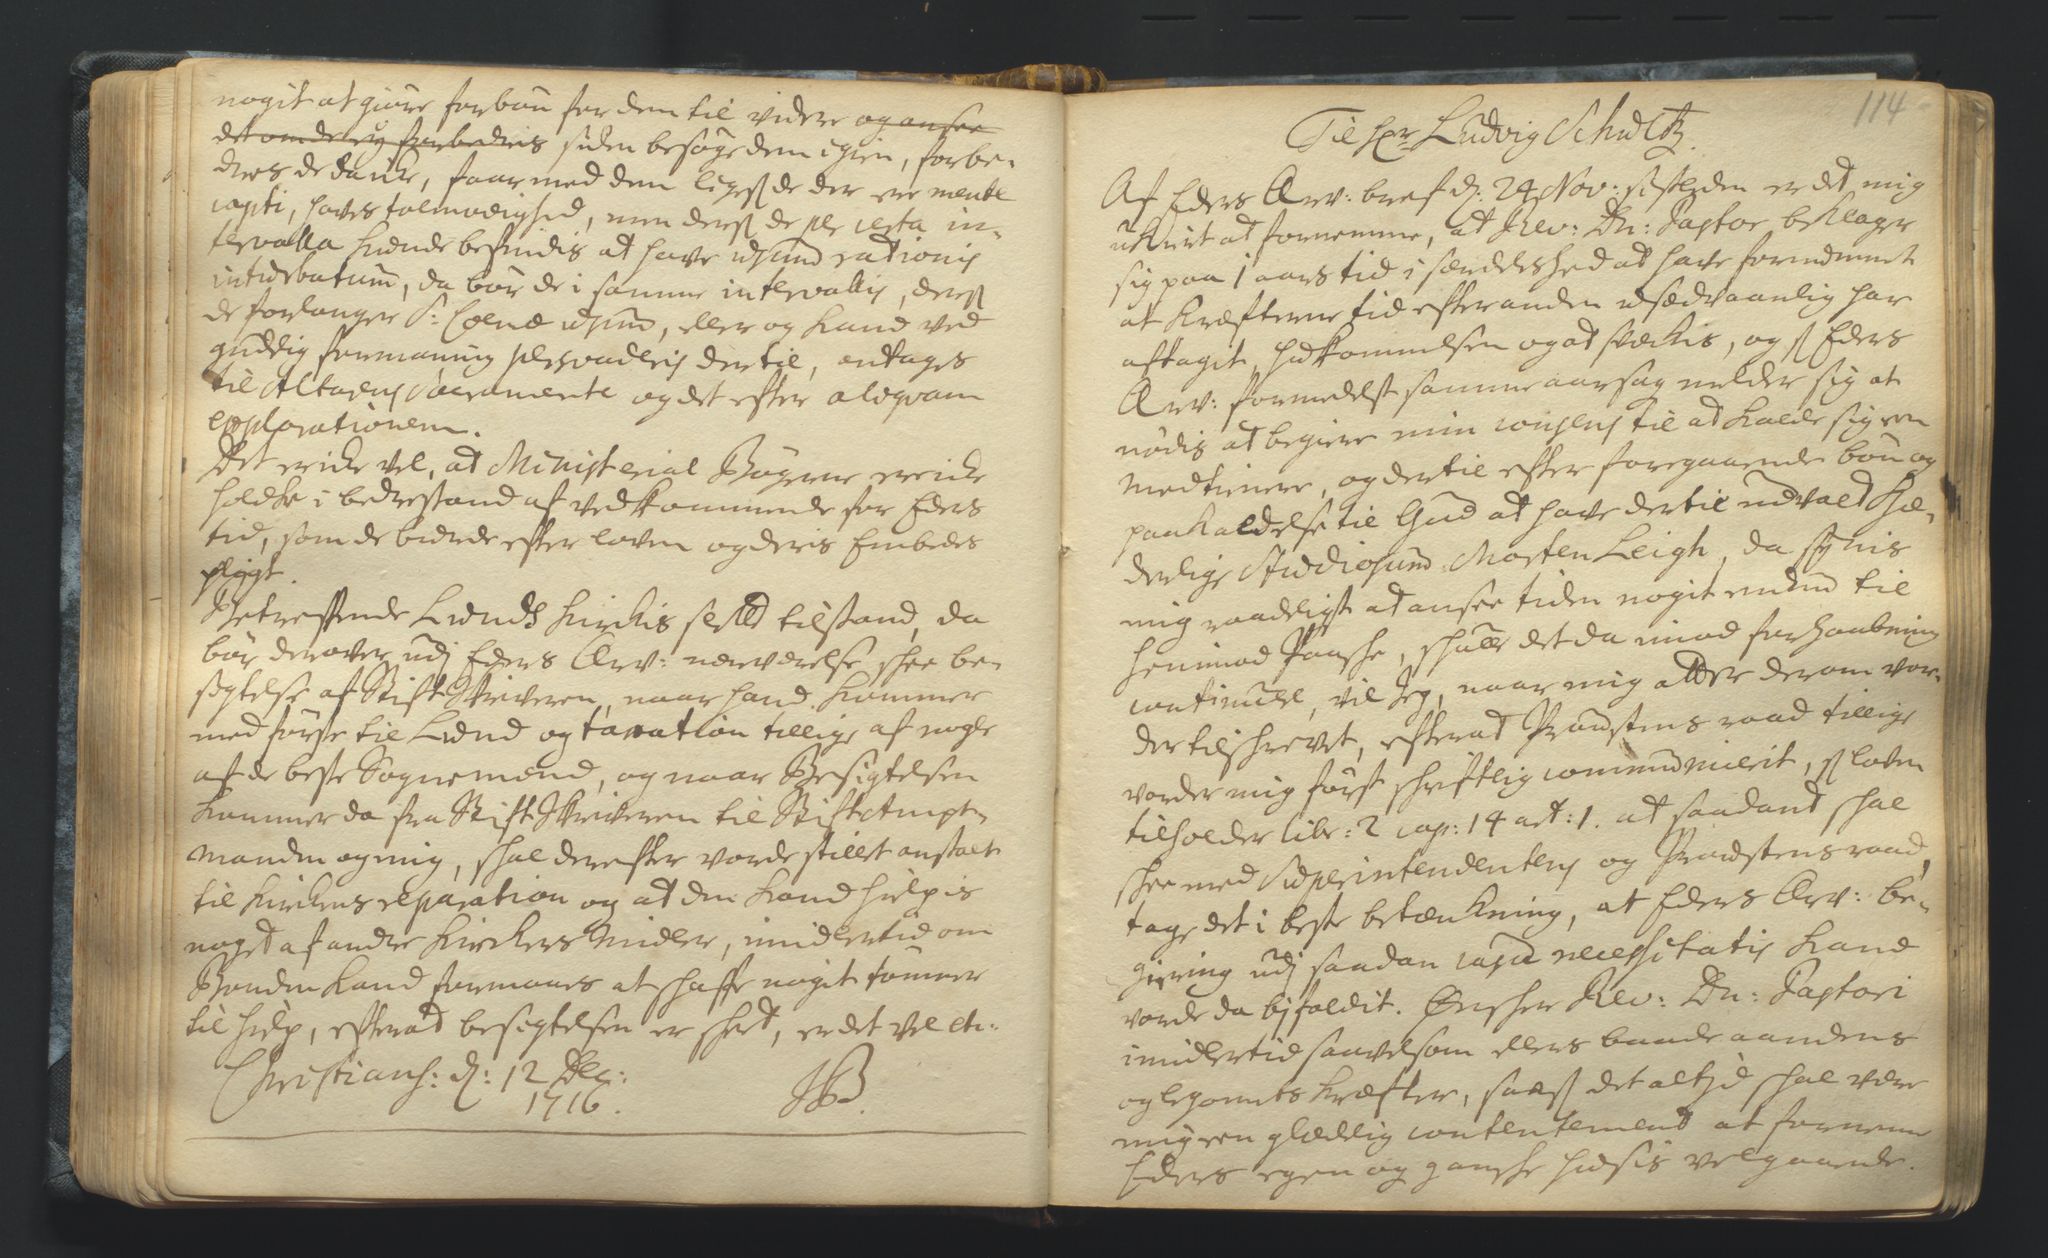 nogit at giøre forbøn for dem til videre og ansee
det om de ey forbedris siden besøge dem igien, forbe-
dres de da icke, faar med dem ligesom de der ere mente
capti, hafves tolmodighed, men dersom de per certa in-
tervalla kunde befindis at have usum rationis
inturbatum, da bør de i samme intervallis, dersom
de forlanger S: Coenæ usum, eller og kand ved
gudelig formaning persvaderis dertil, antages
til Altarens Sacramente og det efter aliqvam
explorationem.
Det er icke vel, at Ministerial Bøgerne er icke
holdte i bedre stand af vedkommende for Eders
tid, som de burde efter loven og deris Embedes
pligt.
Betreffende Lunds Kirckis slett tilstand, da
bør derover udj Eders Ærv: nærværelse skee be-
sigtelse af Stiftskriveren, naar hand kommer
med første til Lund og taxation tillige af nogle
af de beste Sognemænd, og naar Besigtelsen
kommer da fra Stiftskriveren til Stiftampt-
manden og mig, skal derefter vorde stillet anstalt
til Kirckens reparation og at den kand hielpis
noget af andre Kirckers Midler, imidlertid om
Bonden kand formaaes at skaffe nogit tømmer
til hielp, efter at besigtelsen er skeed, er det vel etc:
Christians: d: 12 Dec:
1716.
JB.
114
Til Hr Ludvig Schultz.
Af Eders Ærv: bref d: 24 Nov: sistleden er det mig
ukiert at fornemme, at Rev: Dn: Pastor beklager
sig paa 1 aars tid i særdeleshed at have fornummet
at Kræfterne tid efter anden usædvaanlig har
aftaget, hukommelsen og at svækkis, og som Eders
Ærv: formedelst samme aarsag melder sig at
nødis at begiere min consens til at kalde sig een
medtienere, og dertil efter foregaaende bøn og
paakaldelse til Gud at have dertil udvalt Hæ-
derlige Studiosum Morten Leigh, da synis
mig raadeligst at ansee tiden nogit endnu til
henimod Paaske, skulle det da imod forhaabning
continuere, vil Jeg, naar mig atter derom vor-
der tilskrevet, efter at Proustens raad tillige
vorder mig først skriftlig communicerit, som loven
tilholder libr: 2 cap: 14 art: 1. at saadant skal
skee med Superintendentens og Proustens raad,
tage det i beste betænkning, at Eders Ærv: be-
giering udj saadan casu necessitatis kand
vorde da bifaldit. Ønsker Rev: Dn: Pastori
imidlertid saavelsom ellers baade aandens
og legomets kræfter, saasom det altid skal være
mig een glædelig contentement at fornemme
Eders egen og gandske huusis velgaaende.